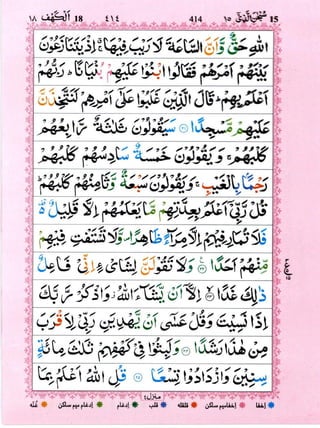 سبحن الذی ١٥ 414 ٤١٤ 18 اَلْكَهْف ١٨
اللّٰهِ حَقٌّ وَّاَنَّ السَّاعَةَ لَا رَيْبَ فِيْهَا ۚ اِذْ يَتَنَازَعُوْنَ
بَيْنَهُمْ اَمْرَهُمْ فَقَالُوا ابْنُوْا عَلَيْهِمْ بُنْيَانًا ؕ رَبُّهُمْ
اَعْلَمُ بِهِمْ ؕ قَالَ الَّذِيْنَ غَلَبُوْا عَلٰٓى اَمْرِهِمْ لَنَتَّخِذَنَّ
عَلَيْهِمْ مَّسْجِدًا ۲۱ سَيَقُوْلُوْنَ ثَلٰثَةٌ رَّابِعُهُمْ
كَلْبُهُمْ ۚ وَيَقُوْلُوْنَ خَمْسَةٌ سَادِسُهُمْ كَلْبُهُمْ
رَجْمًۢا بِالْغَيْبِ ۚ وَيَقُوْلُوْنَ سَبْعَةٌ وَّثَامِنُهُمْ كَلْبُهُمْ ؕ
قُلْ رَّبِّىْٓ اَعْلَمُ بِعِدَّتِهِمْ مَّا يَعْلَمُهُمْ اِلَّا قَلِيْلٌ ۫
فَلَا تُمَارِ فِيْهِمْ اِلَّا مِرَآءً ظَاهِرًا ۪ وَّلَا تَسْتَفْتِ فِيْهِمْ
مِّنْهُمْ اَحَدًا ۲۲ وَلَا تَقُوْلَنَّ لِشَاىْءٍ اِنِّىْ فَاعِلٌ
ذٰلِكَ غَدًا ۲۳ اِلَّآ اَنْ يَّشَآءَ اللّٰهُ ۫ وَاذْكُرْ رَّبَّكَ
اِذَا نَسِيْتَ وَقُلْ عَسٰٓى اَنْ يَّهْدِيَنِ رَبِّىْ لِاَقْرَبَ
مِنْ هٰذَا رَشَدًا ۲۴ وَلَبِثُوْا فِىْ كَهْفِهِمْ ثَلٰثَ مِائَةٍ
سِنِيْنَ وَازْدَادُوْا تِسْعًا ۲۵ قُلِ اللّٰهُ اَعْلَمُ بِمَا
منزل٤
اخفا اخفا میم ساکن قلقله قلب ادغام ادغام میم ساکن غنّه